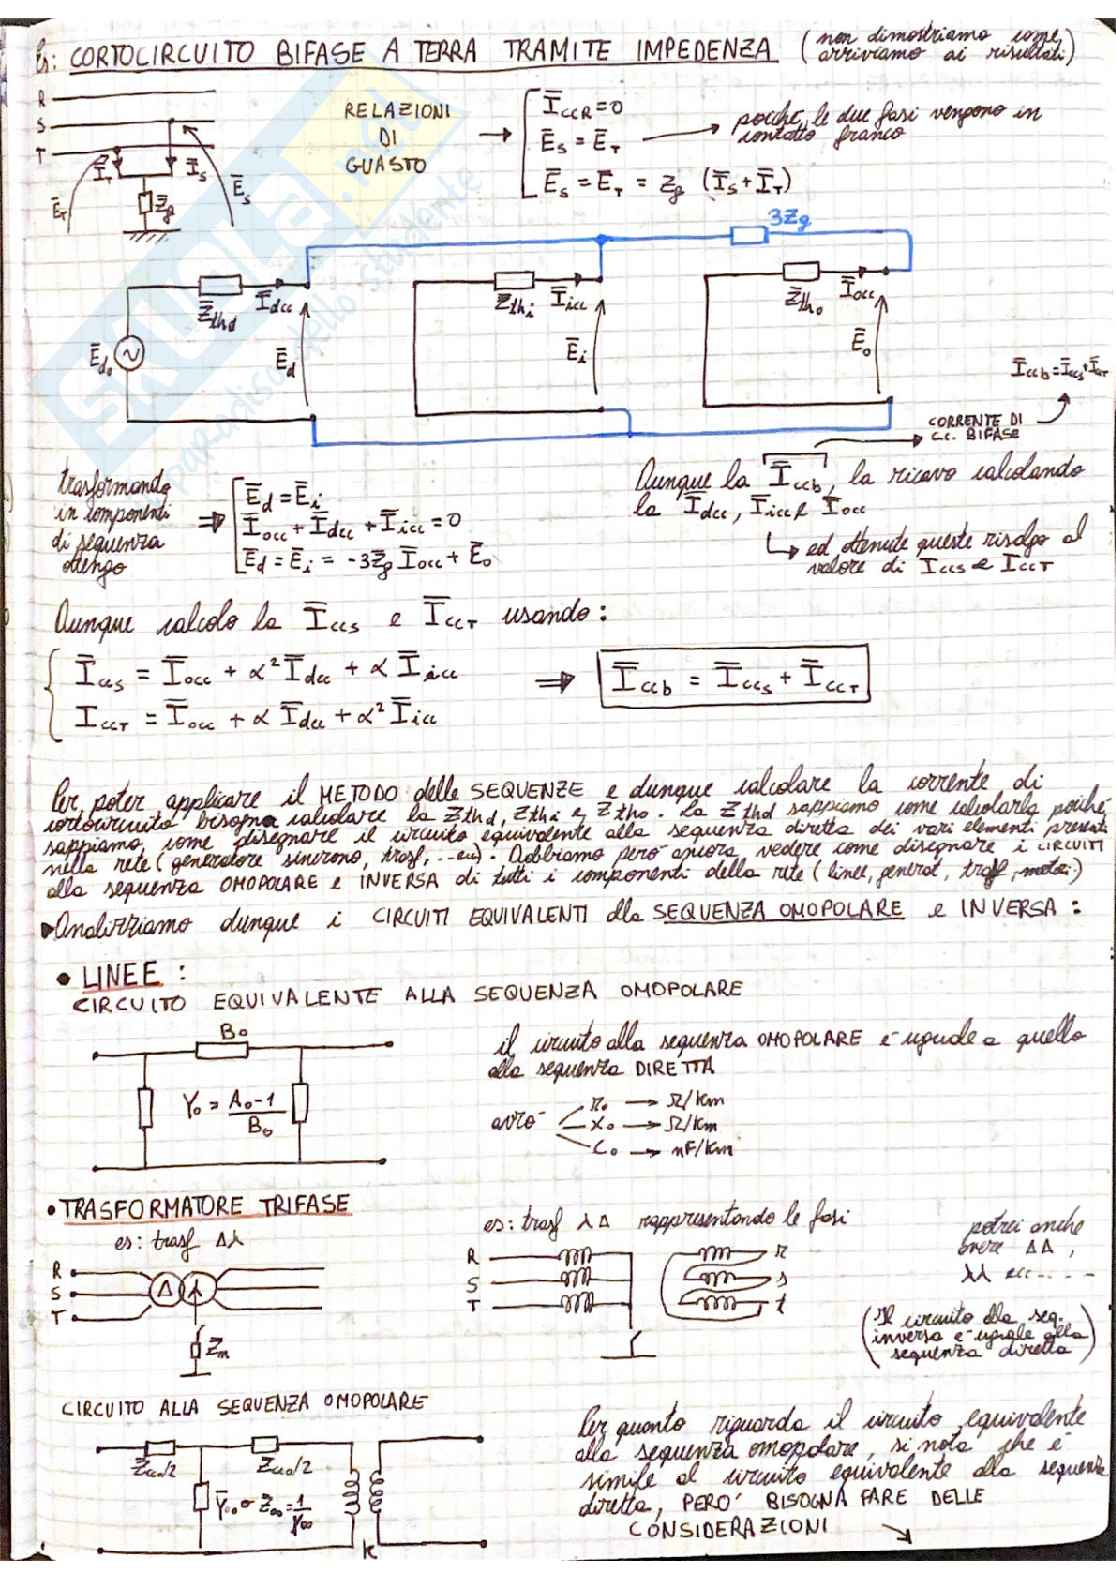 Es: CORTOCIRCUITO BIFASE A TERRA TRAMITE IMPEDENZA (non dimostriamo come arriviamo ai risultati)
R
S
T
I_T
I_S
E_T
E_S
Z_g
RELAZIONI
DI
GUASTO
I_ccR = 0
E_S = E_T → poiché le due fasi vengono in
contatto franco
E_S = E_T = Z_g (I_S + I_T)
3Z_g
Z_thd
I_dcc
E_d0
E_d
Z_thi
I_icc
E_i
Z_tho
I_occ
E_o
I_ccb = I_ccS + I_ccT
CORRENTE DI
C.C. BIFASE
trasformando
in componenti
di sequenza
ottengo
E_d = E_i
I_occ + I_dcc + I_icc = 0
E_d = E_i = -3Z_g I_occ + E_o
Dunque la I_ccb, la ricavo calcolando
la I_dcc, I_icc e I_occ
ed ottenute queste risalgo al
valore di I_ccS e I_ccT
Dunque calcolo la I_ccS e I_ccT usando:
I_ccS = I_occ + α² I_dcc + α I_icc
I_ccT = I_occ + α I_dcc + α² I_icc
⇒ I_ccb = I_ccS + I_ccT
Per poter applicare il METODO delle SEQUENZE e dunque calcolare la corrente di
cortocircuito bisogna calcolare la Z_thd, Z_thi e Z_tho. La Z_thd sappiamo come calcolarla poiché
sappiamo come disegnare il circuito equivalente alla sequenza diretta dei vari elementi presenti
nella rete (generatore sincrono, trasf, ...ecc). Dobbiamo però ancora vedere come disegnare i CIRCUITI
alla sequenza OMOPOLARE e INVERSA di tutti i componenti della rete (linee, generat, trasf, motori)
Analizziamo dunque i CIRCUITI EQUIVALENTI alla SEQUENZA OMOPOLARE e INVERSA:
• LINEE:
CIRCUITO EQUIVALENTE ALLA SEQUENZA OMOPOLARE
B_0
Y_0 = A_0-1 / B_0
il circuito alla sequenza OMOPOLARE è uguale a quello
alla sequenza DIRETTA
avrò
r_0 → Ω/km
x_0 → Ω/km
c_0 → nF/km
• TRASFORMATORE TRIFASE
es: trasf Δ⅄
R
S
T
Δ
Z_m
es: trasf ⅄Δ rappresentando le fasi
R
S
T
r
s
t
potrei anche
avere ΔΔ,
⅄⅄ ecc....
(Il circuito alla seq.
inversa è uguale alla
sequenza diretta)
CIRCUITO ALLA SEQUENZA OMOPOLARE
Z_cco/2
Z_cco/2
Y_oo o Z_oo = 1/Y_oo
K
Per quanto riguarda il circuito equivalente
alla sequenza omopolare, si nota che è
simile al circuito equivalente alla sequenza
diretta, PERÒ BISOGNA FARE DELLE
CONSIDERAZIONI